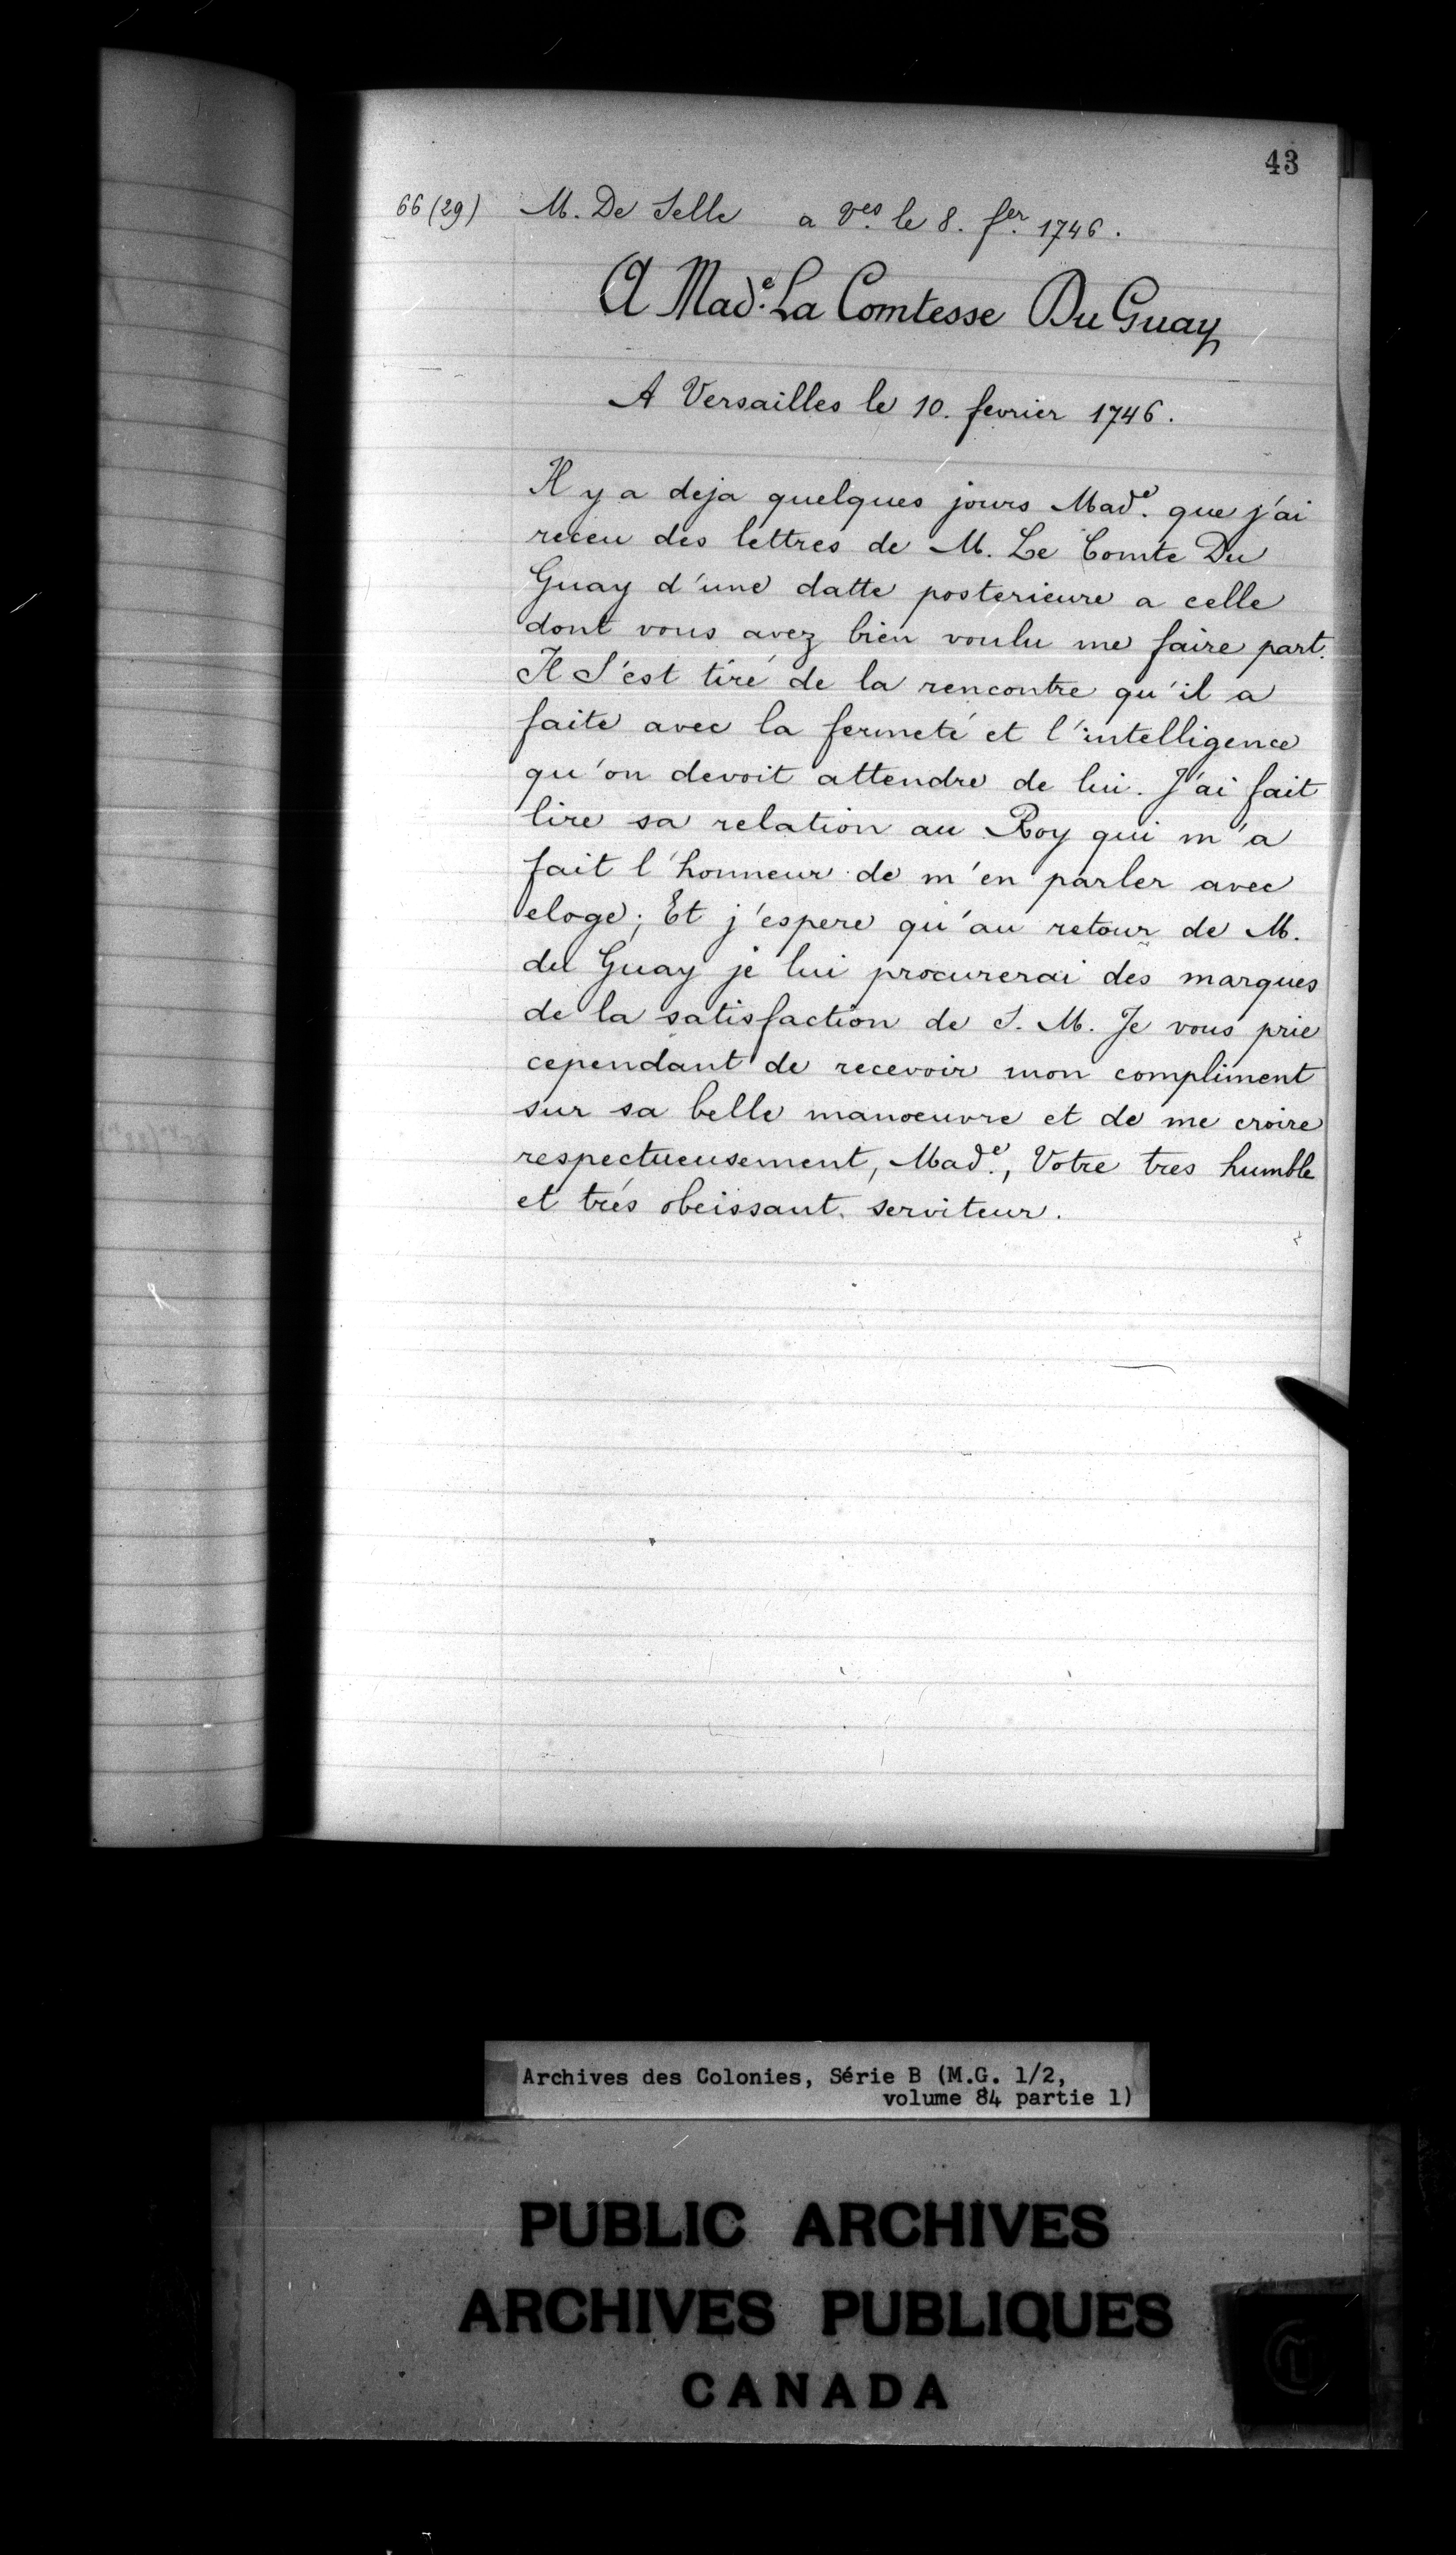 43
66 (29) M. De Selle a V.es le 8. f.er 1746.
A Mad.e La Comtesse Du Guay
A Versailles le 10. fevrier 1746.
Il y a deja quelques jours Mad.e que j'ai
receu des lettres de M. Le Comte Du
Guay d'une datte posterieure a celle
dont vous avez bien voulu me faire part.
Il S'est tiré de la rencontre qu'il a
faite avec la fermeté et l'intelligence
qu'on devoit attendre de lui. J'ai fait
lire sa relation au Roy qui m'a
fait l'honneur de m'en parler avec
eloge; Et j'espere qu'au retour de M.
du Guay je lui procurerai des marques
de la satisfaction de S. M. Je vous prie
cependant de recevoir mon compliment
sur sa belle manoeuvre et de me croire
respectueusement, Mad.e, Votre tres humble
et trés obeissant serviteur.
Archives des Colonies, Série B (M.G. 1/2,
volume 84 partie 1)
PUBLIC ARCHIVES
ARCHIVES PUBLIQUES
CANADA